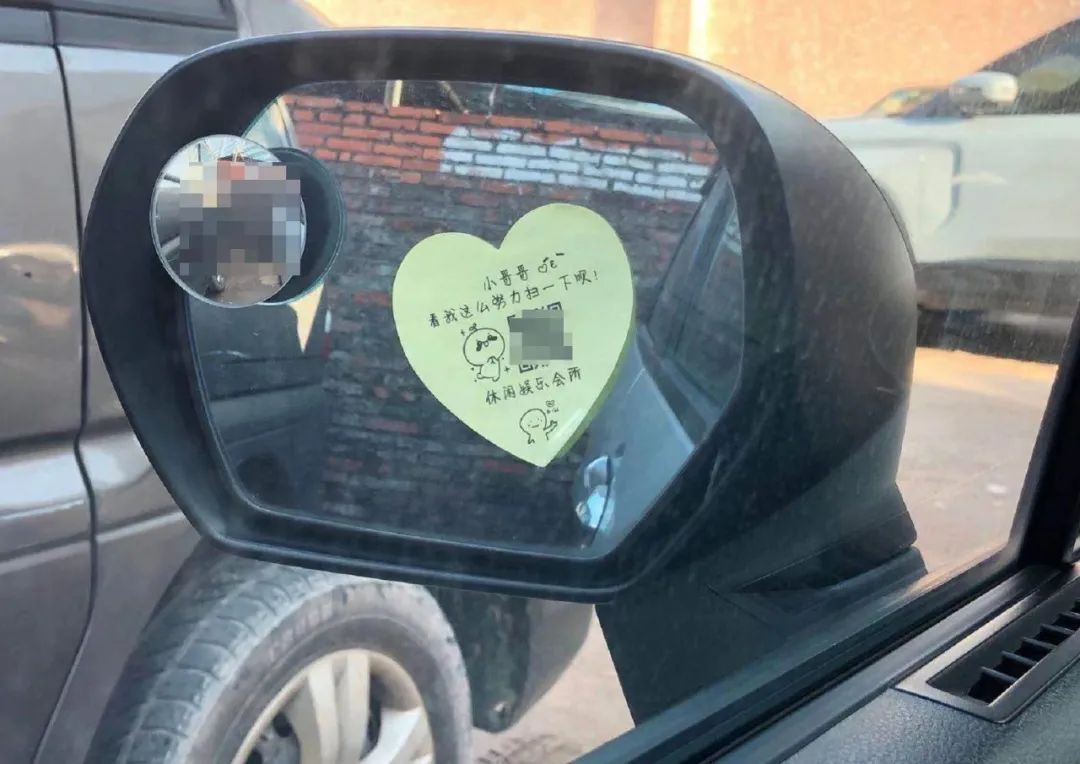 小哥哥
看我这么努力扫一下呗！
休闲娱乐会所